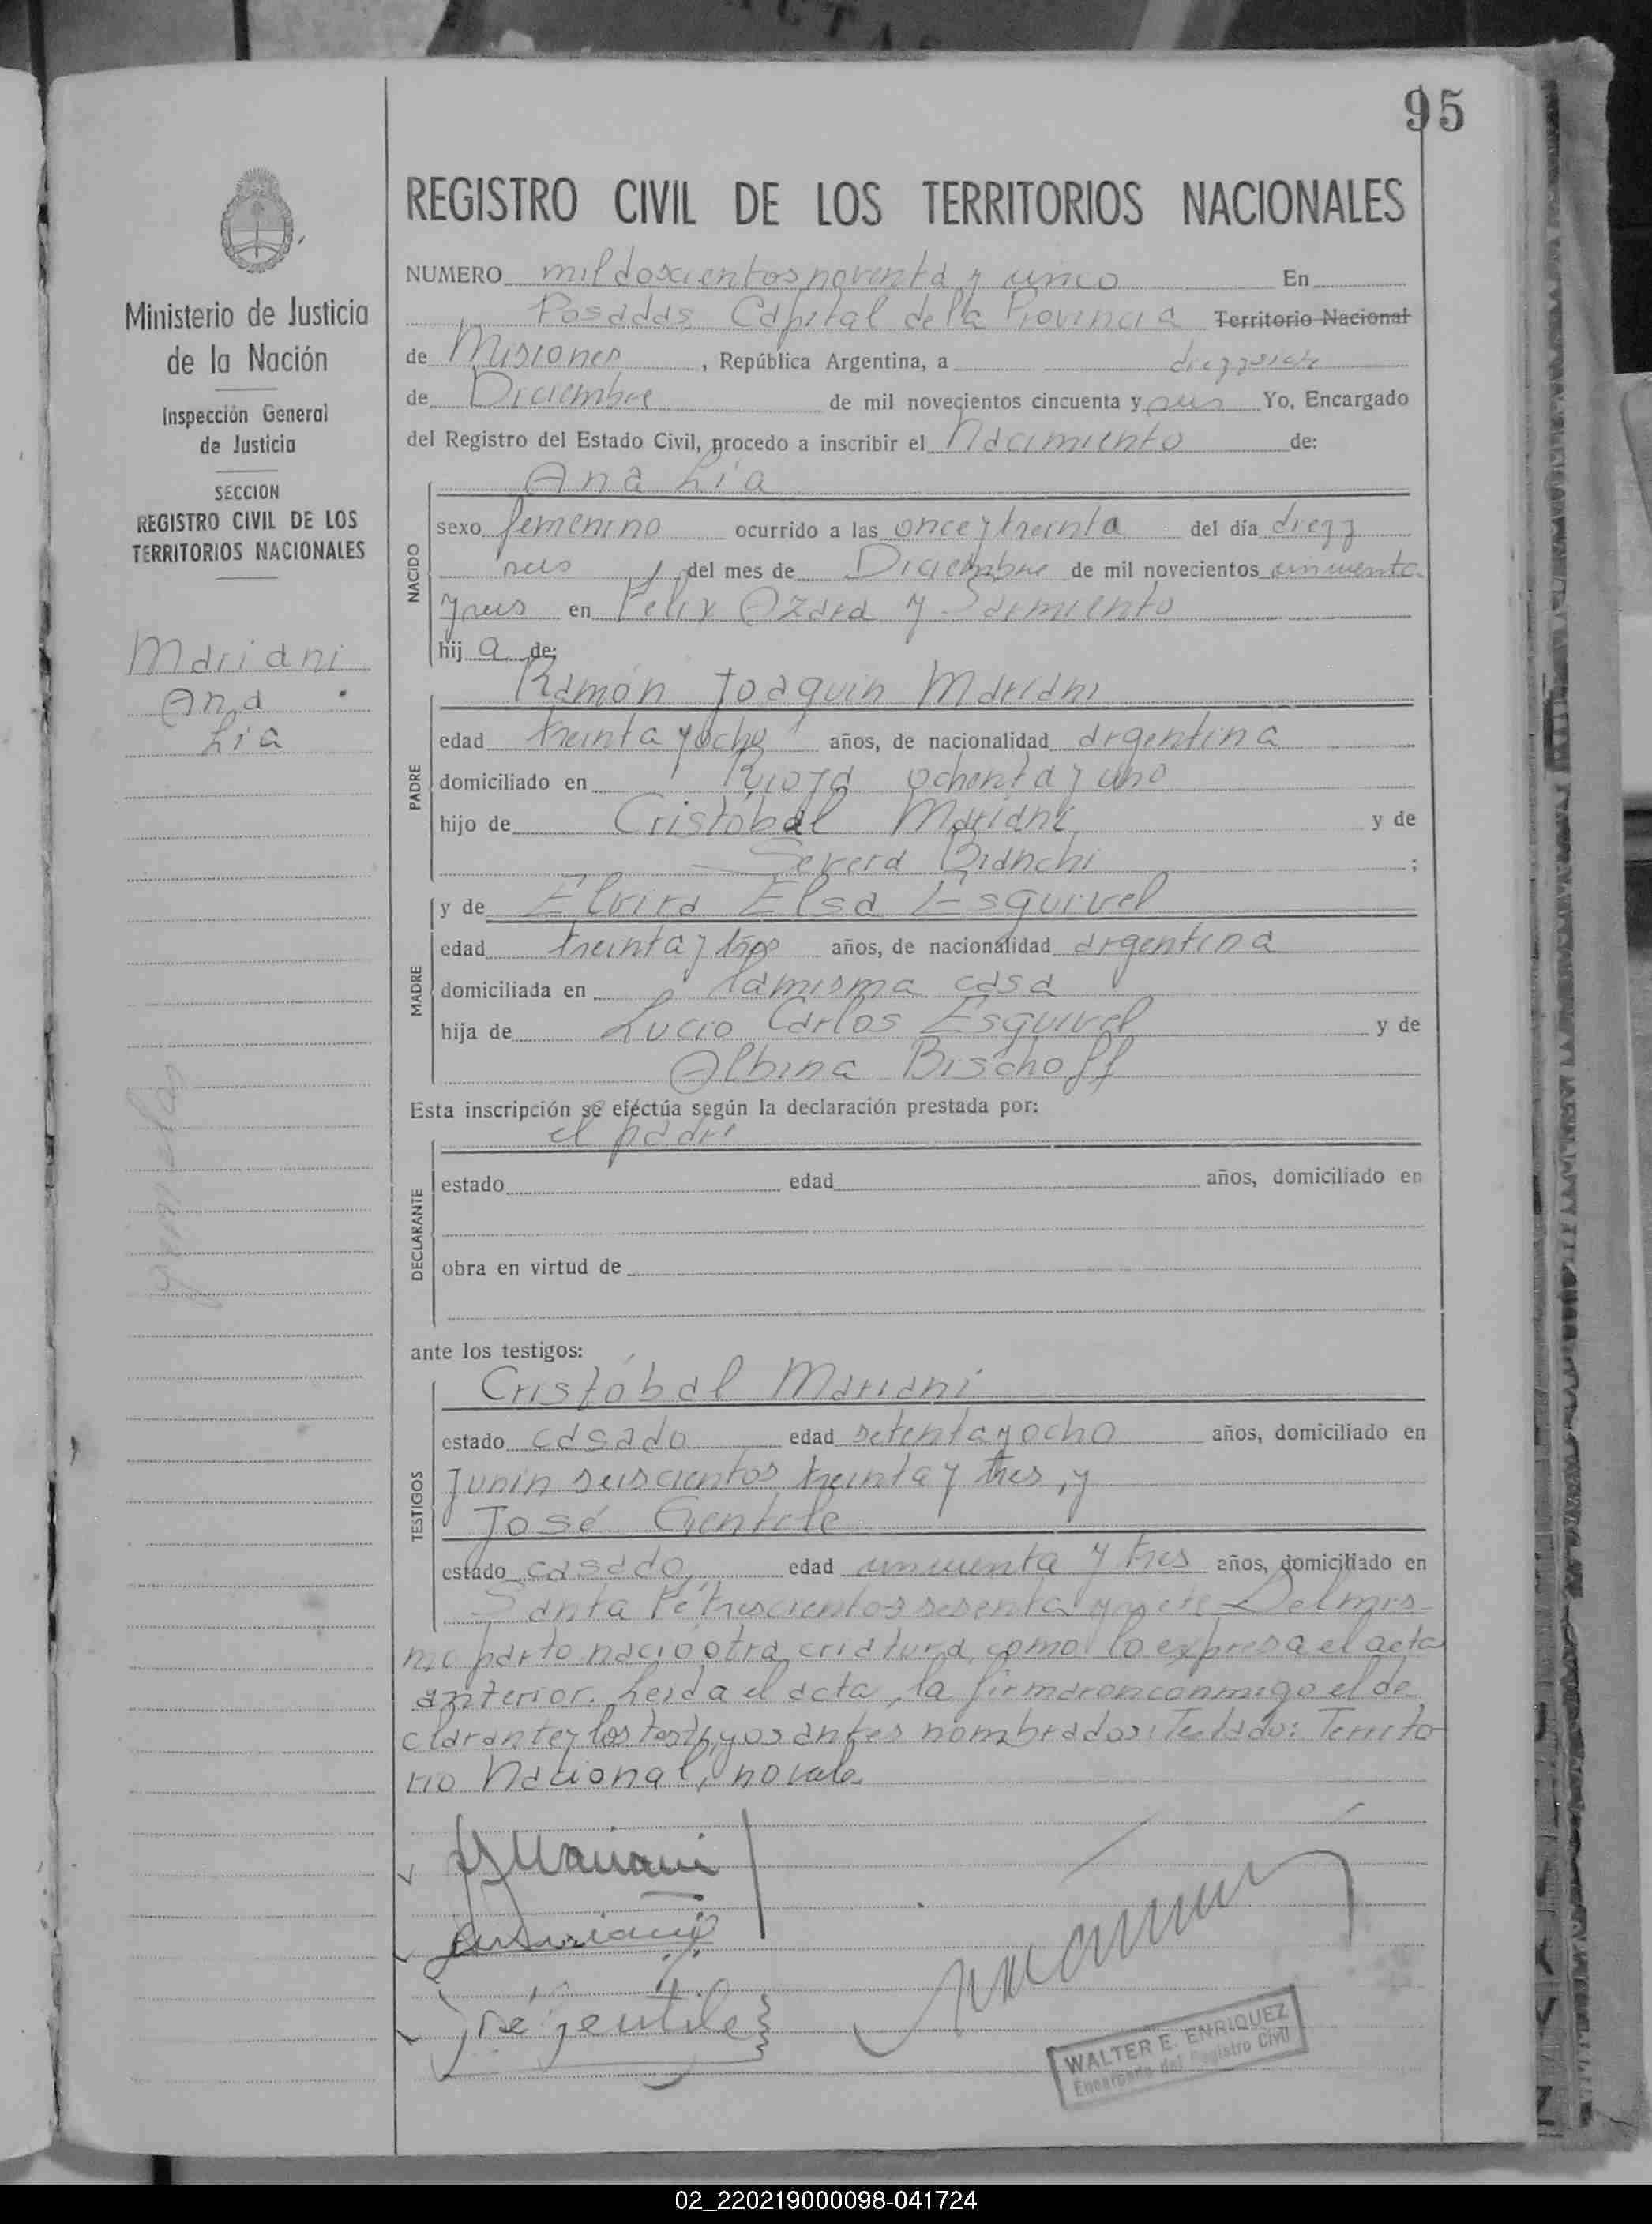 95
REGISTRO CIVIL DE LOS TERRITORIOS NACIONALES
Ministerio de Justicia
de la Nación
Inspección General
de Justicia
SECCION
REGISTRO CIVIL DE LOS
TERRITORIOS NACIONALES
Mariani
Ana
Lía
NUMERO mil doscientos noventa y cinco En
Posadas, Capital de la Provincia Territorio Nacional
de Misiones, República Argentina, a diezysiete
de Diciembre de mil novecientos cincuenta y seis Yo, Encargado
del Registro del Estado Civil, procedo a inscribir el Nacimiento de:
NACIDO
Ana Lía
sexo femenino ocurrido a las once y treinta del día diez y
seis del mes de Diciembre de mil novecientos cincuenta
y seis en Felix Azara y Sarmiento
hij a de:
PADRE
Ramón Joaquín Mariani
edad treinta y ocho años, de nacionalidad argentina
domiciliado en Rioja ochenta y uno
hijo de Cristóbal Mariani y de
Severa Bianchi ;
MADRE
y de Elvira Elsa Esquivel
edad treinta y años, de nacionalidad argentina
domiciliada en la misma casa
hija de Lucio Carlos Esquivel y de
Albina Bischoff
Esta inscripción se efectúa según la declaración prestada por:
DECLARANTE
el padre
estado edad años, domiciliado en
obra en virtud de
ante los testigos:
TESTIGOS
Cristóbal Mariani
estado casado edad setenta y ocho años, domiciliado en
Junín seiscientos treinta y tres, y
José Gentile
estado casado, edad cincuenta y tres años, domiciliado en
Santa Fe trescientos sesenta y siete Del mis-
mo parto nació otra criatura, como lo expresa el acta
anterior. Leída el acta, la firmaron conmigo el de
clarante y los testigos antes nombrados: Testado: Territo
rio Nacional, no vale.
Mariani
Mariani
José Gentile
WALTER E. ENRIQUEZ
Encargado del Registro Civil
02_220219000098-041724